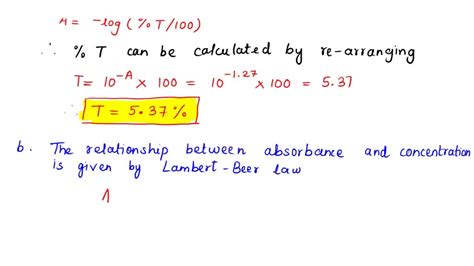 A = -log (% T/100)
∴ % T can be calculated by re-arranging
T = 10^-A × 100 = 10^-1.27 × 100 = 5.37
∴ T = 5.37 %
b. The relationship between absorbance and concentration
is given by Lambert-Beer law
A